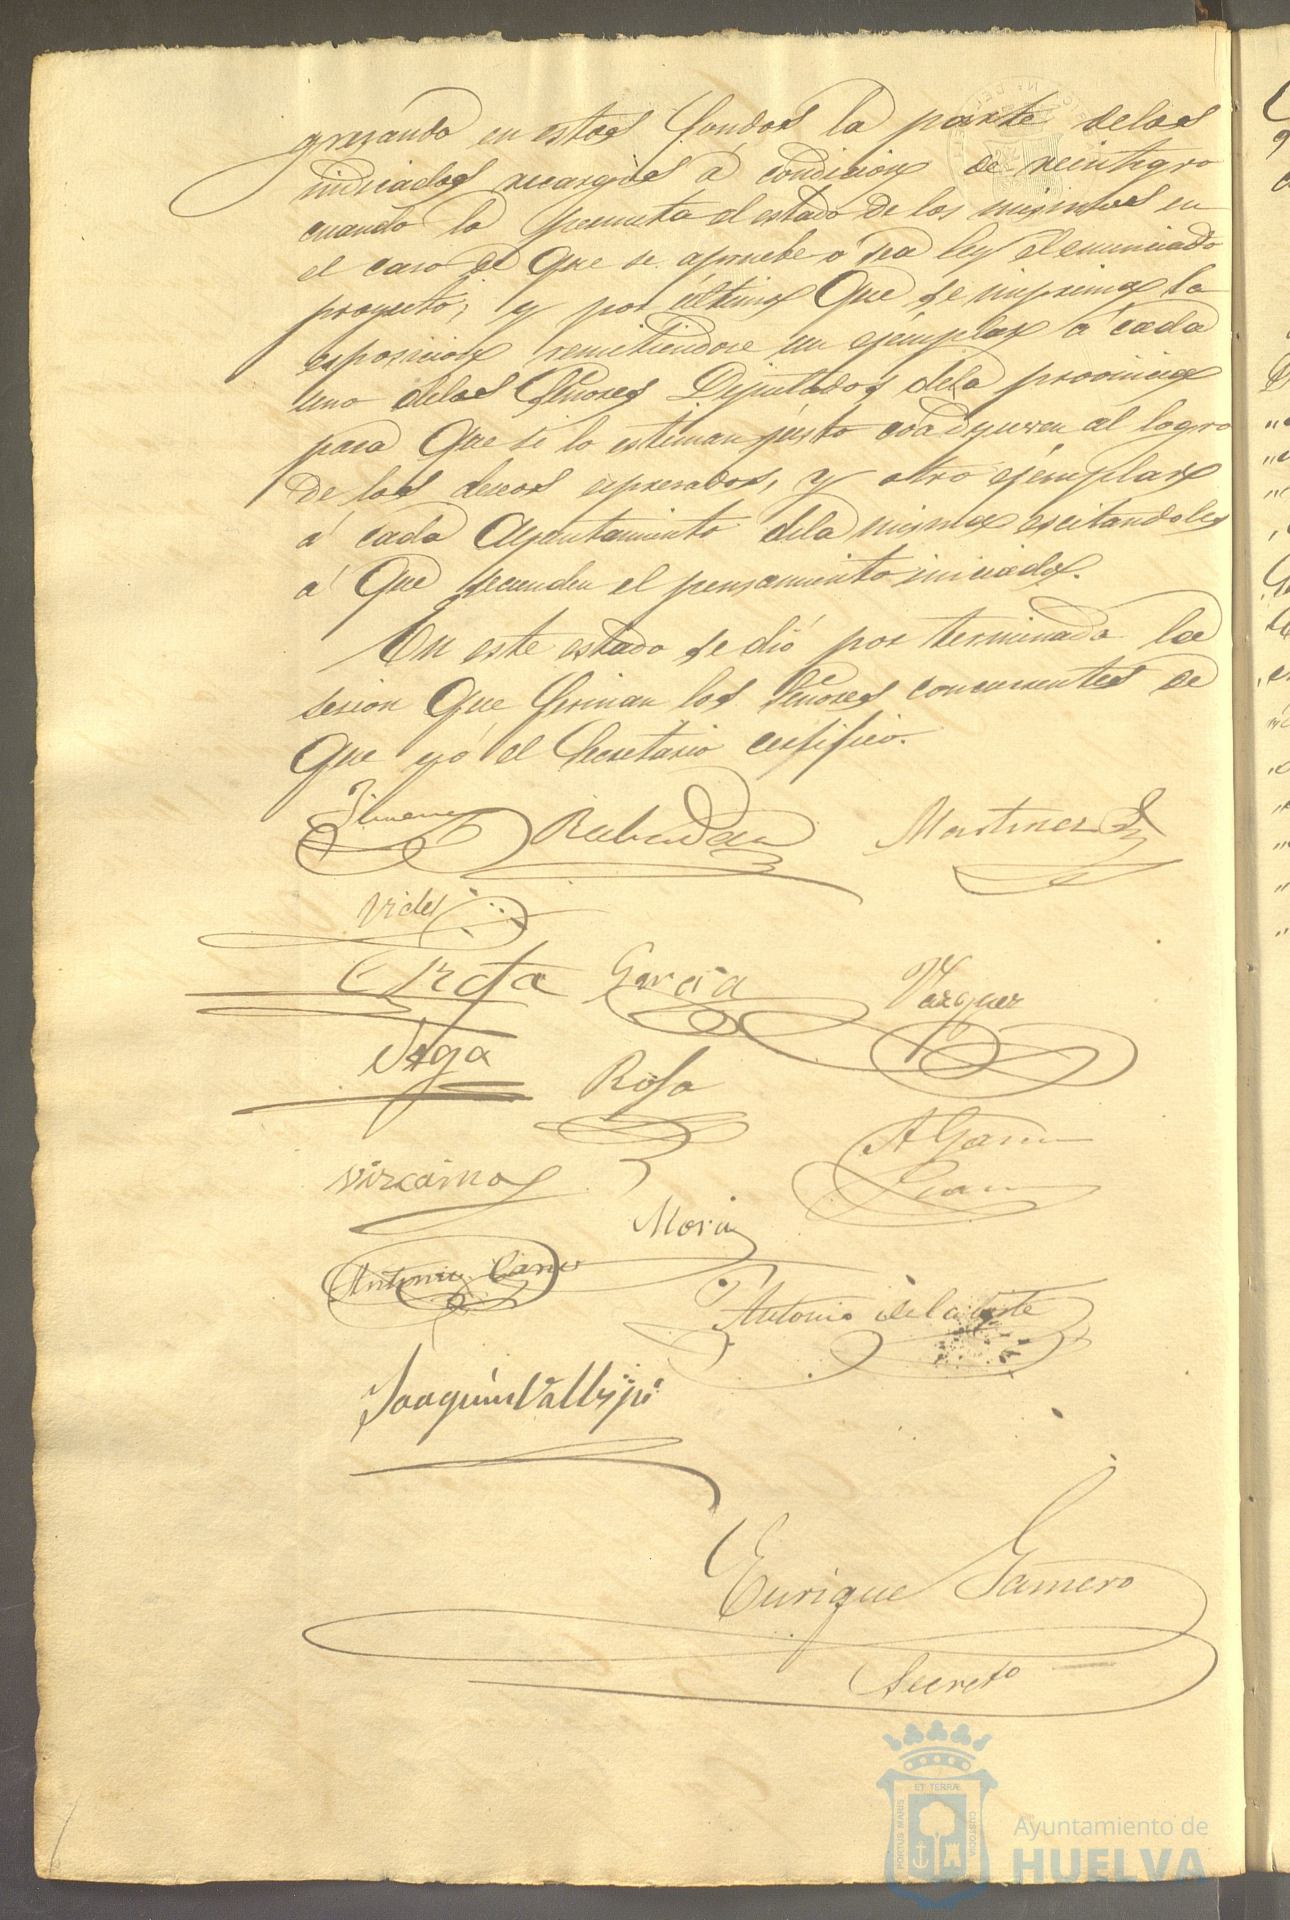 gresando en estos fondos la parte delos
indicados recargos á condicion de reintegro
cuando lo permita el estado de los mismos en
el caso de que se apruebe ó sea ley el enunciado
proyecto; y por ultimo que se imprima la
esposicion remitiendose un ejemplar á cada
uno delos Señores Diputados dela provincia
para que si lo estiman justo coadyuven al logro
de los deseos espresados, y otro ejemplar
á cada Ayuntamiento dela misma escitandoles
á que secunden el pensamiento iniciado.
En este estado se dió por terminada la
sesion que firman los Señores concurrentes de
que yó el Secretario certifico.
Jimenez Rabadan Martinez
Vides
Orta Garcia Vazquez
Vega Rosa
A Garcia
Vizcaino
Moria
Antonio
Antonio dela Corte
Joaquin Vallejo
Enrique Gamero
Secretº
ET TERRÆ
PORTUS MARIS
CUSTODIA
Ayuntamiento de
HUELVA